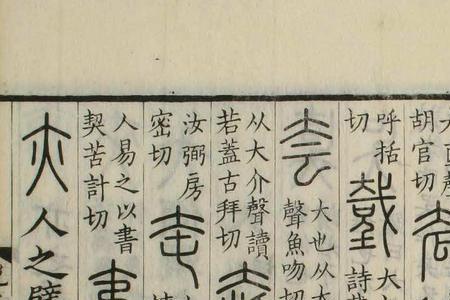 亘聲
胡官切
呼括
切
大
詩
夽
大也从大
聲魚吻切
从大介聲讀
若蓋古拜切
汝弼房
密切
人易之以書
契苦計切
夷
亦人之臂